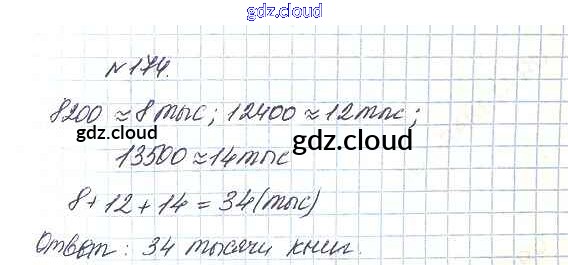 gdz.cloud
gdz.cloud
№174.
8200 ≈ 8 тыс; 12400 ≈ 12 тыс;
gdz.cloud
gdz.cloud
13500 ≈ 14 тыс
8 + 12 + 14 = 34 (тыс)
Ответ: 34 тысячи книг.